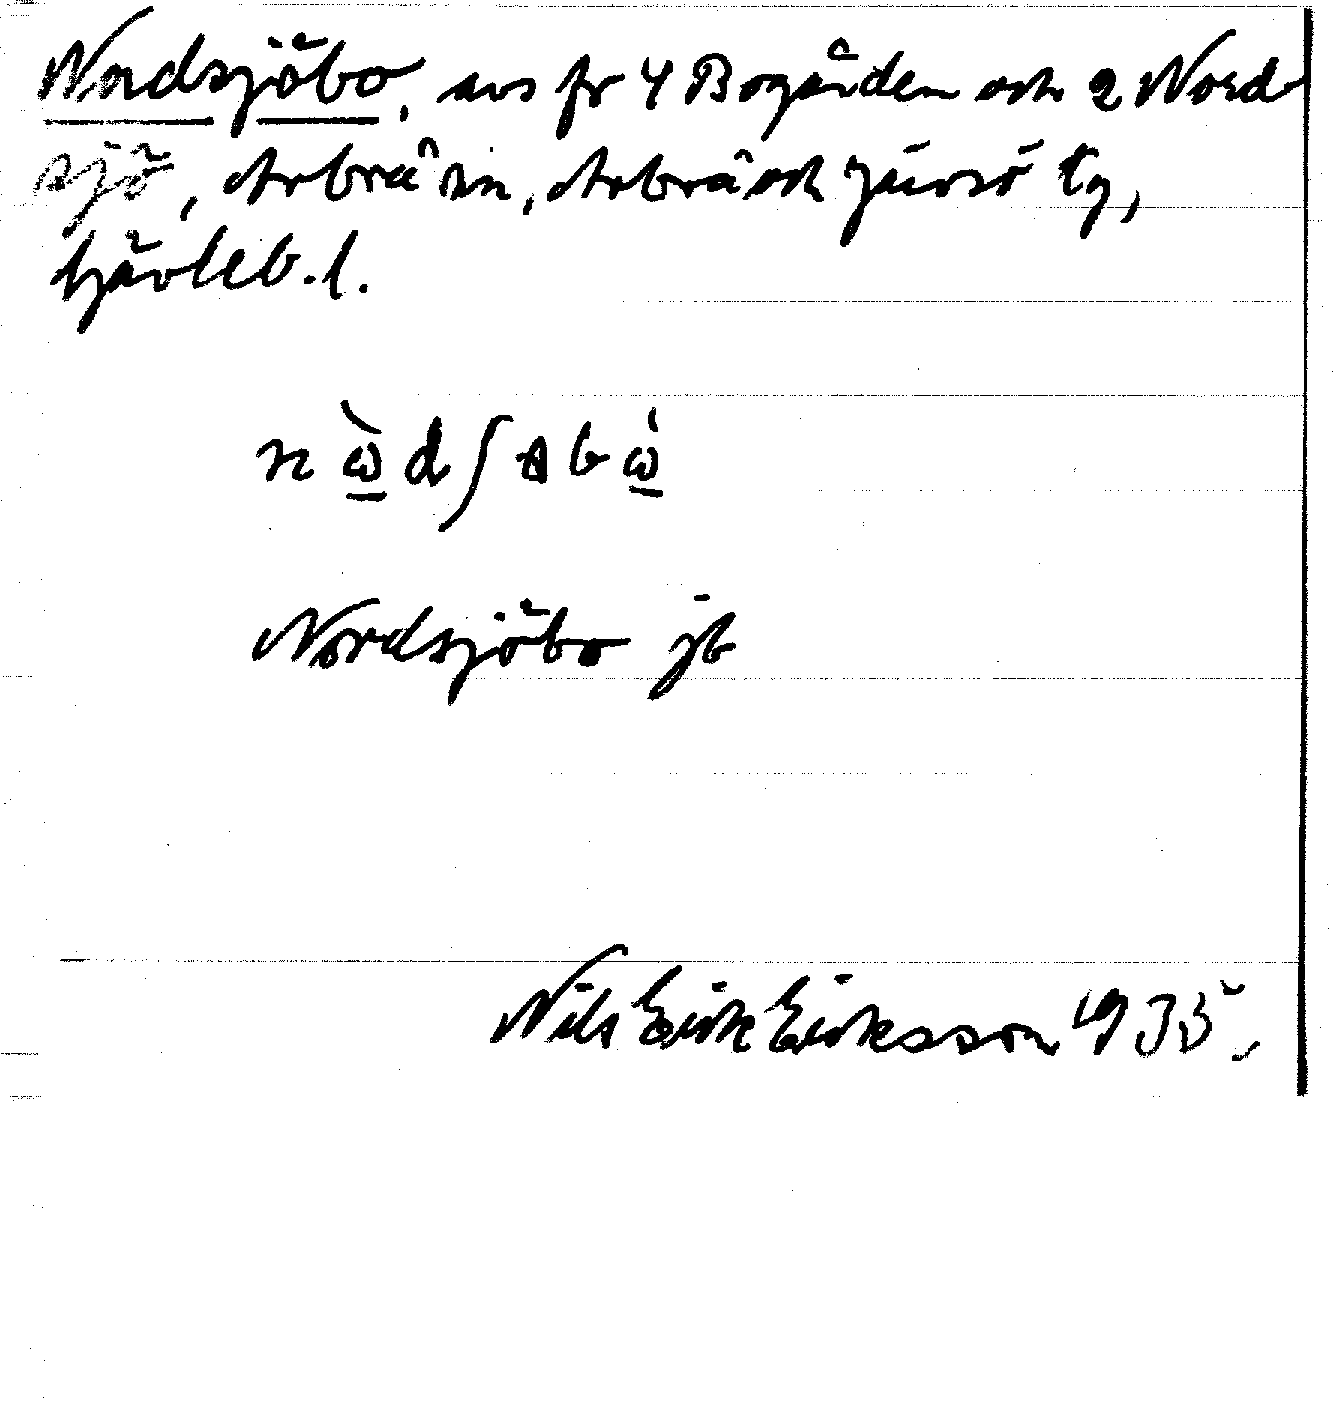 Nordsjöbo, avs fr 4 Bogården och 2 Nord-
sjö, Arbrå sn, Arbrå och Järvsö tg,
Gävleb. l.
nὼ̲dʃɵbώ̲
Nordsjöbo jb
Nils Erik Eriksson 1935.